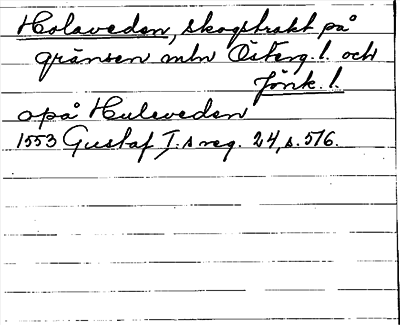 Holaveden, skogstrakt på
gränsen mln Österg. l. och
Jönk. l.
opå Huleveden
1553 Gustaf I.s reg. 24, s. 516.